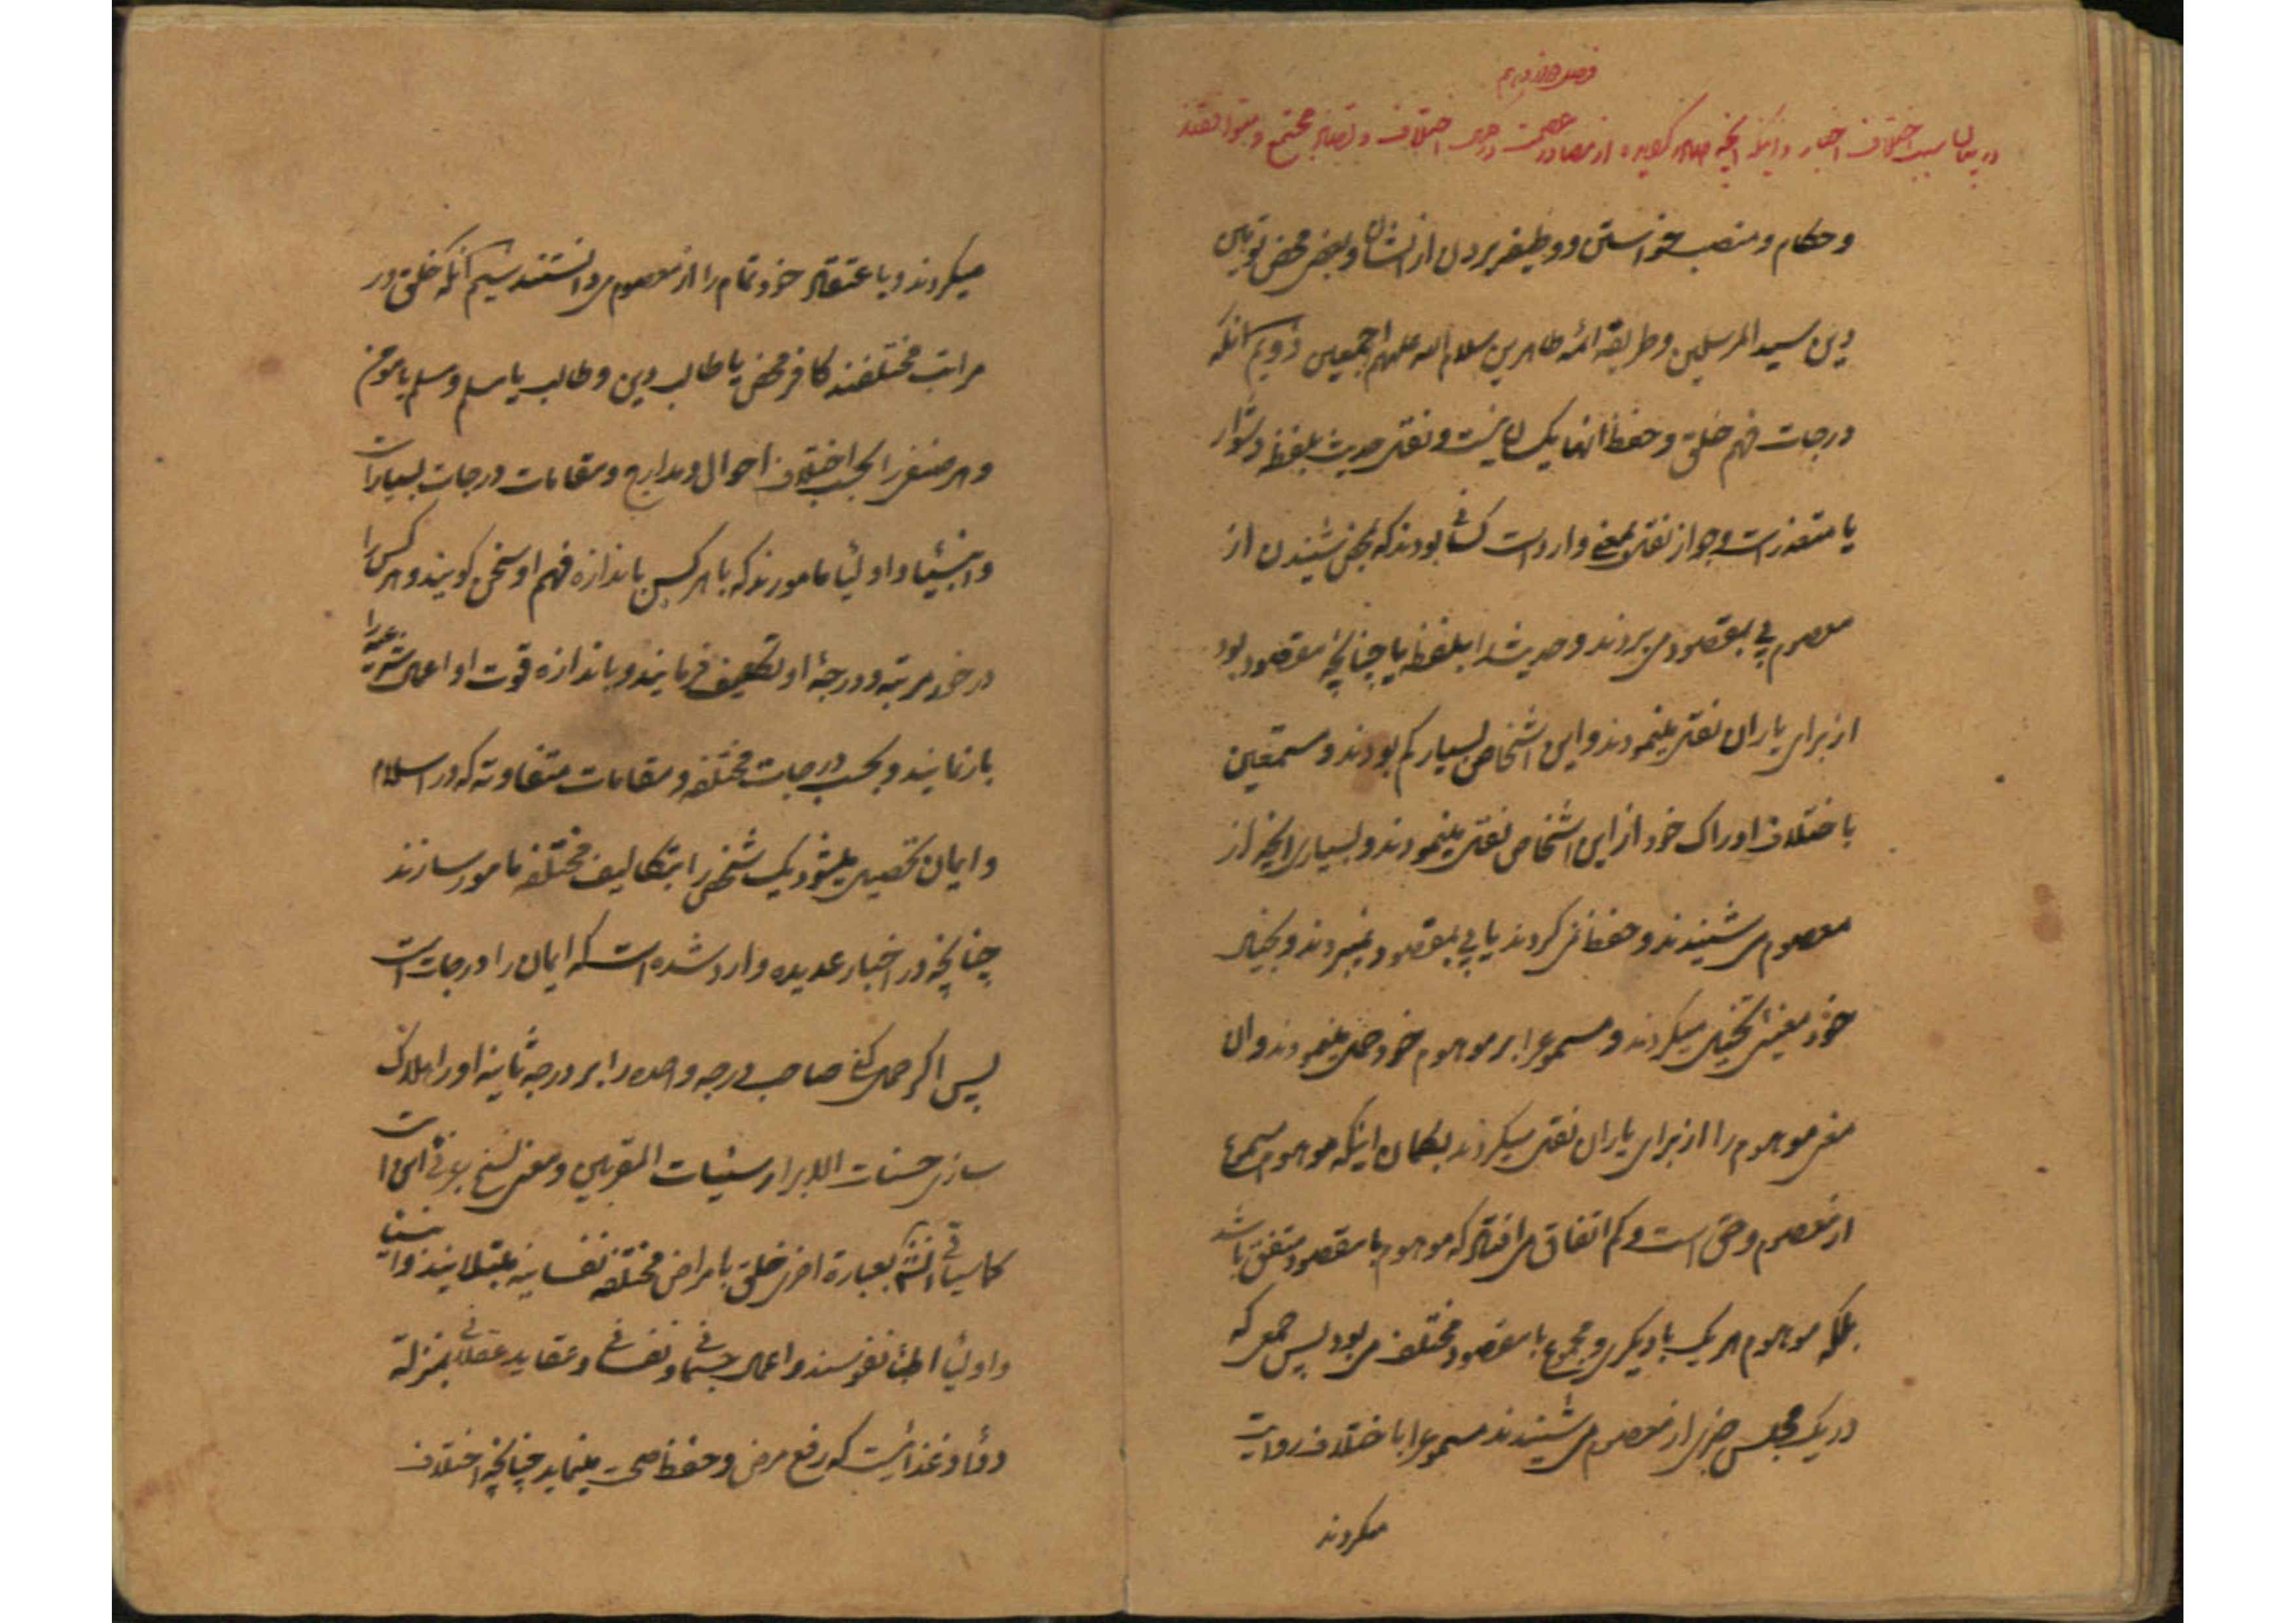 فصل دوازدهم
در بیان سبب اختلاف اخبار و اینکه آنچه صادر گردیده از مصادر عصمت در عین اختلاف و تضاد مجتمع و متوافقند
و حکام و منصب خواستن و وظیفه بردن از ایشان و بعضی محض توهین
دین سید المرسلین و طریقه ائمه طاهرین سلام الله علیهم اجمعین دویم آنکه
درجات فهم خلق و حفظ آنها یکسان نیست و نقل حدیث بلفظه دشوار
یا متعذر است و جواز نقل بمعنی وارد است کسانی بودند که بمحض شنیدن از
معصوم پی بمقصود می بردند و حدیث را بلفظه یا چنانچه مقصود بود
از برای یاران نقل مینمودند و این اشخاص بسیار کم بودند و مستمعین
باختلاف ادراک خود از این اشخاص نقل مینمودند و بسیاری آنچه از
معصوم می شنیدند و حفظ نمی کردند یا پی بمقصود نمیبردند و بخیال
خود معنیی تخیل میکردند و مسموع را بر موهوم خود حمل مینمودند و آن
معنی موهوم را از برای یاران نقل میکردند بگمان اینکه موهوم مسموع
از معصوم و حق است و کم اتفاق می افتاد که موهوم با مقصود متفق باشد
بلکه موهوم هر یک با دیگری و مجموع با مقصود مختلف می بود پس جمعی که
در یک مجلس چیزی از معصوم می شنیدند مسموع را باختلاف روایت
میکردند
میکردند و باعتقاد خود تمام را از معصوم می دانستند سیم آنکه خلق در
مراتب مختلفند کافر محض یا طالب دین و طالب یا مسلم و مسلم یا مؤمن
و هر صنفی را بحسب اختلاف احوال و مدارج و مقامات درجات بسیار است
و انبیا و اولیا مامورند که با هر کس باندازه فهم او سخن گویند و هر کس را
در خور مرتبه و درجهٔ او تکلیف فرمایند و باندازه قوت او اعمال شرعیه را
باز نمایند و بحسب درجات مختلفه و مقامات متفاوته که در اسلام
و ایمان تحصیل میشود یک شخص را بتکالیف مختلفه مامور سازند
چنانچه در اخبار عدیده وارد شده است که ایمان را درجات است
پس اگر حمل کنی صاحب درجه واحده را بر درجه ثانیه او را هلاک
سازی حسنات الابرار سیئات المقربین و معنی نسخ بر وفق این است
کما سیاتی انشاء بعبارة اخری خلق بامراض مختلفه نفسانیه مبتلایند و انبیا
و اولیا اطباء نفوسند و اعمال جسمانی و نفسانی و عقاید عقلانی بمنزلة
دوا و غذائیست که رفع مرض و حفظ صحت مینماید چنانچه اختلاف